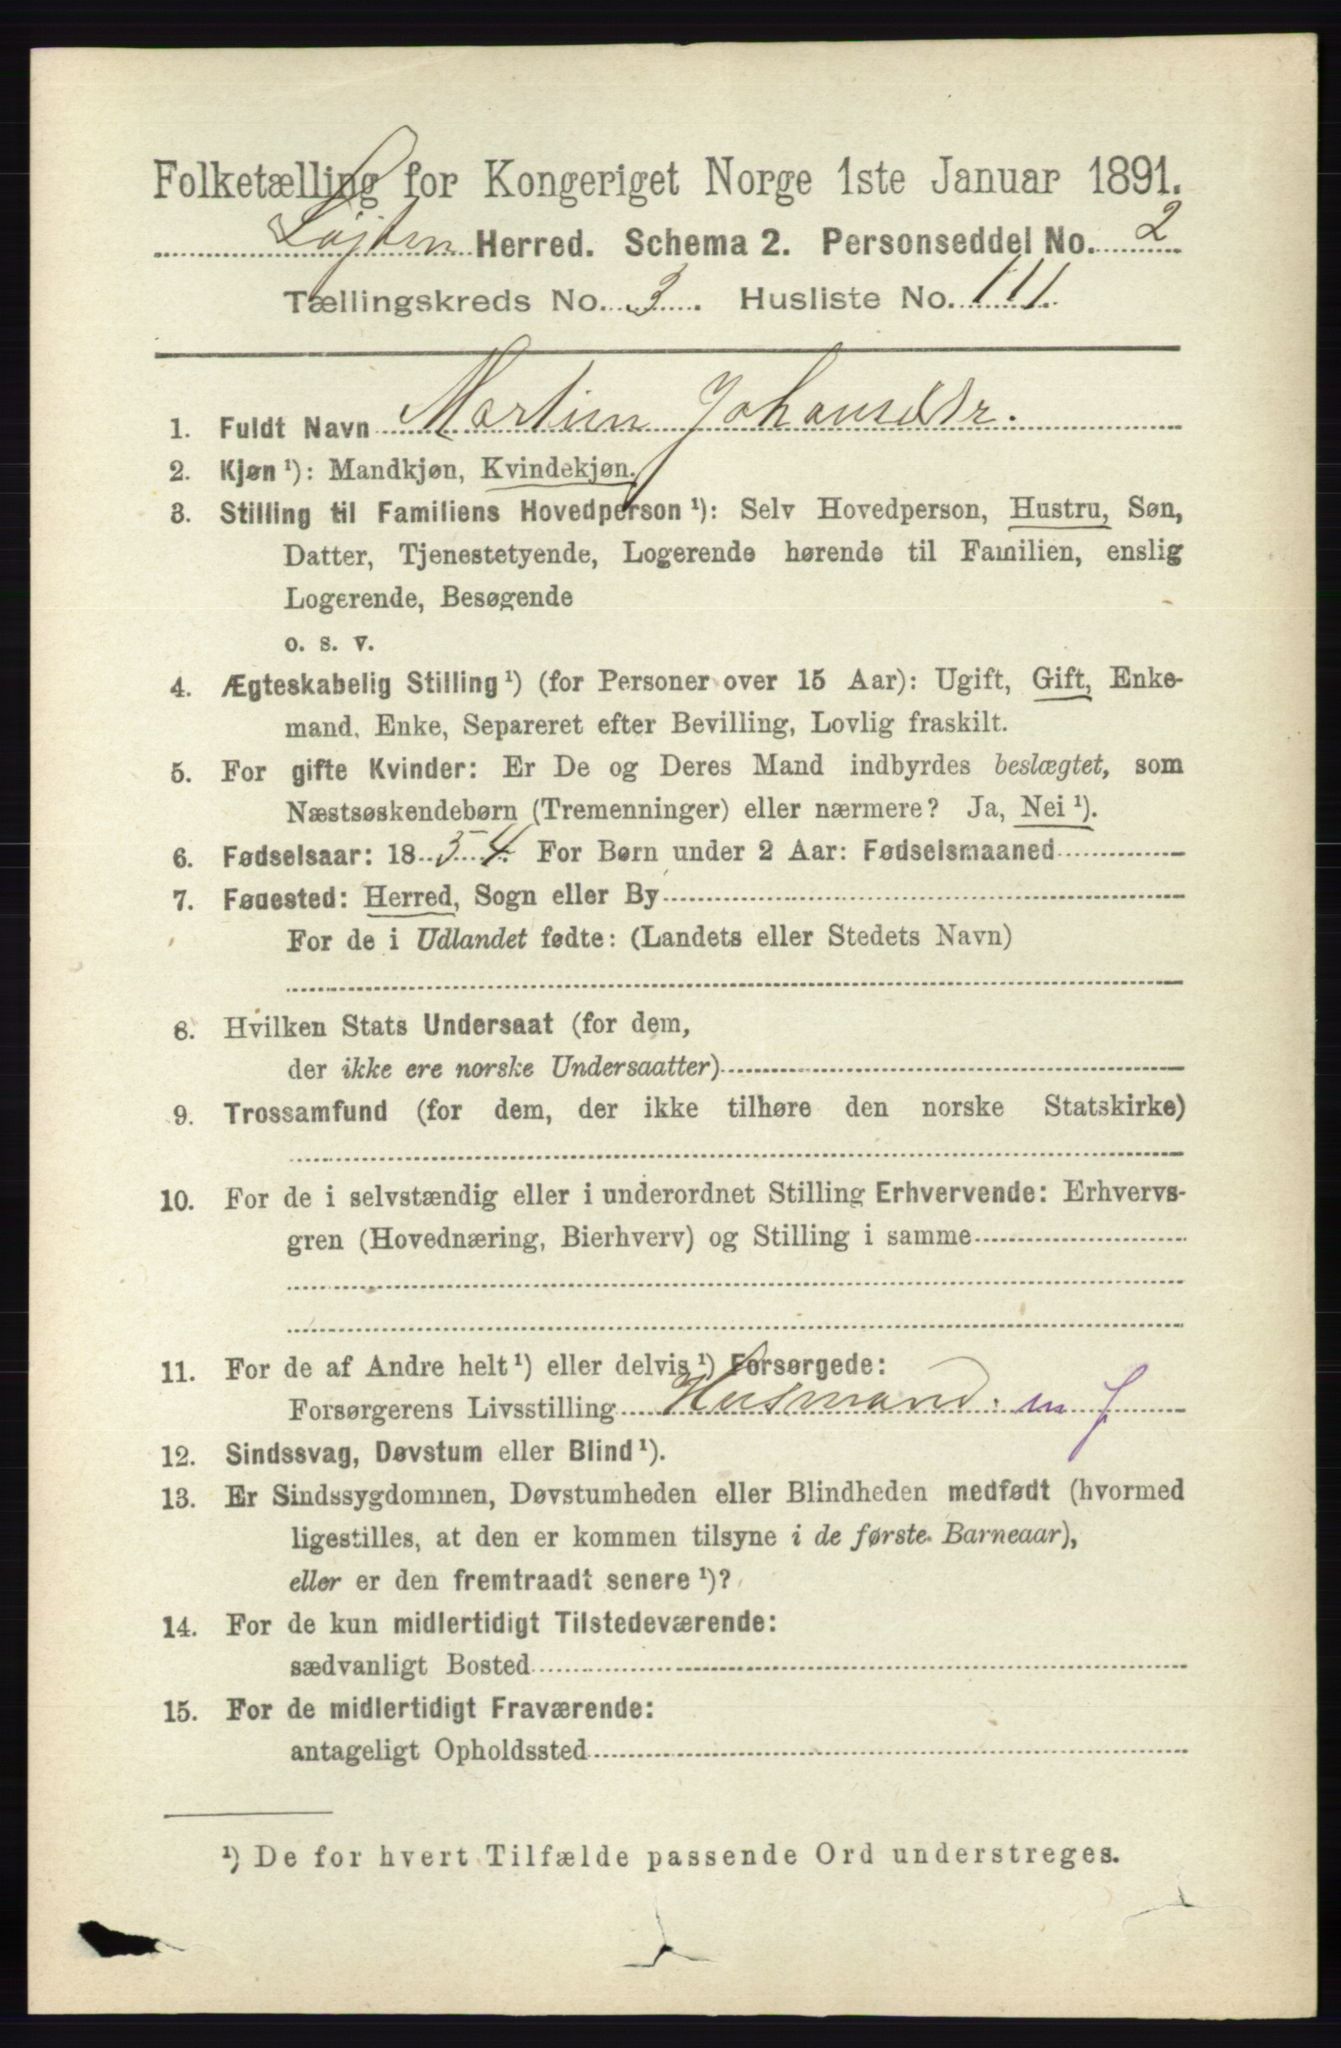 Folketælling for Kongeriget Norge 1ste Januar 1891.
Løjten Herred. Schema 2. Personseddel No. 2
Tællingskreds No. 3. Husliste No. 111.
1. Fuldt Navn Martine Johansdtr.
2. Kjøn ¹): Mandkjøn, Kvindekjøn.
3. Stilling til Familiens Hovedperson ¹): Selv Hovedperson, Hustru, Søn,
Datter, Tjenestetyende, Logerende hørende til Familien, enslig
Logerende, Besøgende
o. s. v.
4. Ægteskabelig Stilling ¹) (for Personer over 15 Aar): Ugift, Gift, Enke-
mand, Enke, Separeret efter Bevilling, Lovlig fraskilt.
5. For gifte Kvinder: Er De og Deres Mand indbyrdes beslægtet, som
Næstsøskendebørn (Tremenninger) eller nærmere? Ja, Nei ¹).
6. Fødselsaar: 1854. For Børn under 2 Aar: Fødselsmaaned
7. Fødested: Herred, Sogn eller By
For de i Udlandet fødte: (Landets eller Stedets Navn)
8. Hvilken Stats Undersaat (for dem,
der ikke ere norske Undersaatter)
9. Trossamfund (for dem, der ikke tilhøre den norske Statskirke)
10. For de i selvstændig eller i underordnet Stilling Erhvervende: Erhvervs-
gren (Hovednæring, Bierhverv) og Stilling i samme
11. For de af Andre helt ¹) eller delvis ¹) Forsørgede:
Forsørgerens Livsstilling Husmand. m J
12. Sindssvag, Døvstum eller Blind ¹).
13. Er Sindssygdommen, Døvstumheden eller Blindheden medfødt (hvormed
ligestilles, at den er kommen tilsyne i de første Barneaar),
eller er den fremtraadt senere ¹)?
14. For de kun midlertidigt Tilstedeværende:
sædvanligt Bosted
15. For de midlertidigt Fraværende:
antageligt Opholdssted
¹) De for hvert Tilfælde passende Ord understreges.